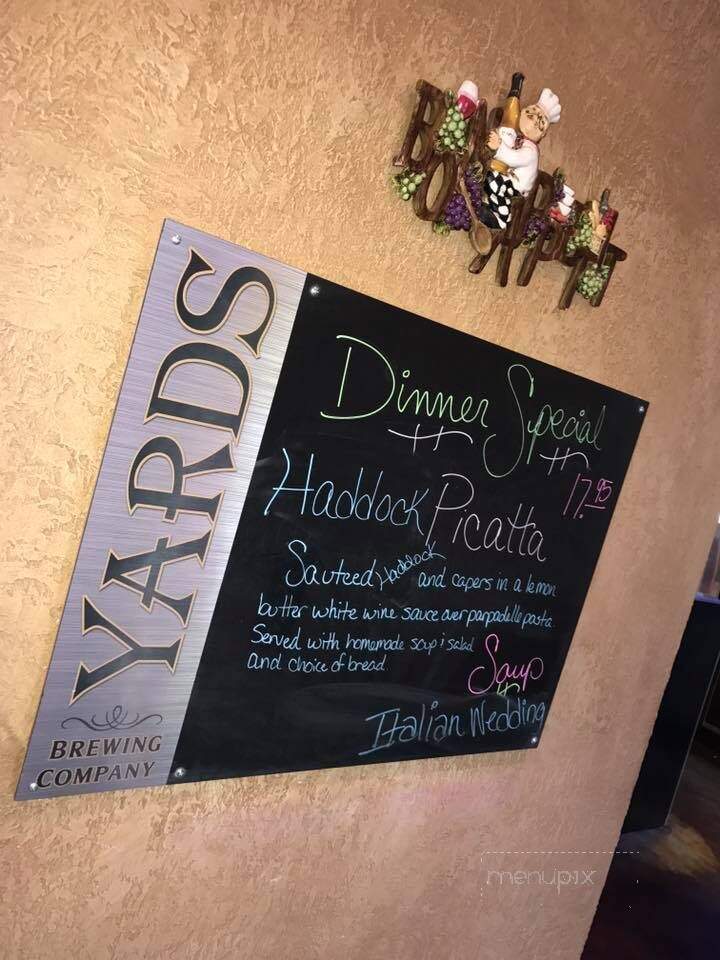 BON
APPETIT
YARDS
BREWING
COMPANY
Dinner Special
17.95
Haddock Picatta
Sauteed Haddock and capers in a lemon
butter white wine sauce over parpadelle pasta
Served with homemade soup & salad
and choice of bread.
Soup
Italian Wedding
menupix